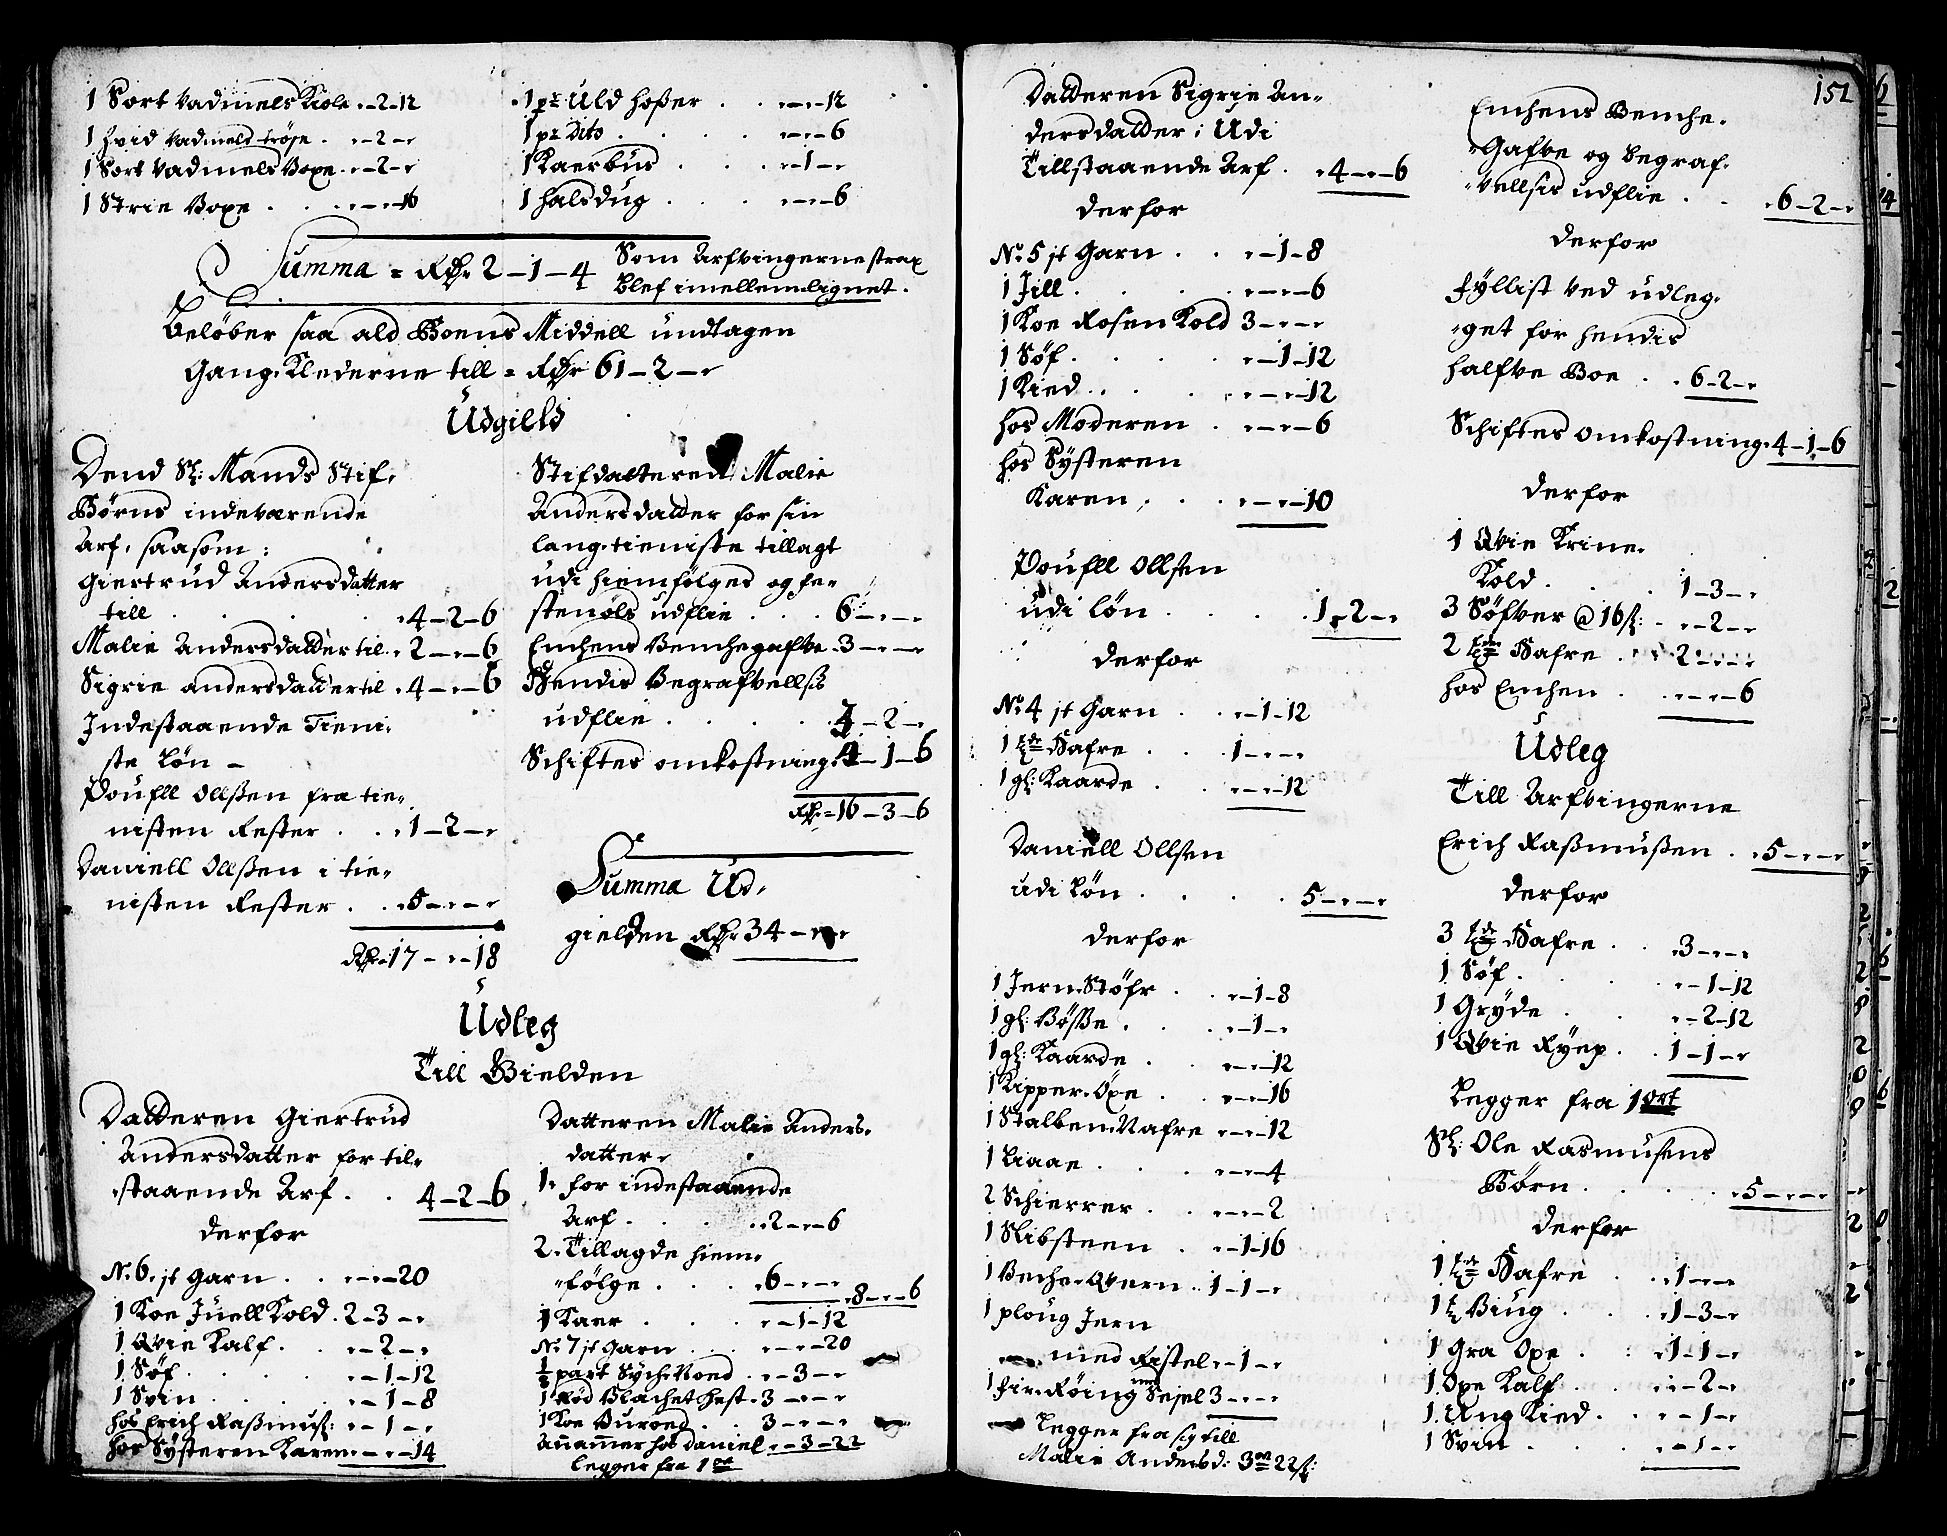 1 Sort Vadmels Kiole „-2-12
1 hvid Vadmels trøje . „-2-„
1 Sort Vadmels Boxe . „-2-„
1 Strie Boxe . . „-„-16
1 pr Uld hoßer . . „-„-12
1 pr dito . . . . „-„-6
1 Kaerbus . . . „-1-„
1 halsdug . . . „-„-6
Summa = Rdr 2-1-4
Som Arfvingerne strax
blef imellem lignet.
Beløber saa ald Boens Middell undtagen
Gang Klederne till = Rdr 61-2-„
Udgield
Dend Sl: Mands Stif-
Børns indeværende
Arf, saasom:
Giertrud Andersdatter
till . . . . „4-2-6
Malie Andersdatter til „2-„-6
Sigrie andersdatter til „4-„-6
Indestaaende Tieni-
ste Løn -
Poufvell Ollßen fra tie-
nisten Rester . . „1-2-„
Daniell Ollßen i tie-
nisten Rester . . „5-„-„
Rdr 17-„-18
Stifdatteren Malie
Andersdatter for sin
lang tieniste tillagt
udi hiemfølged og fe-
stenøls udflie . . . 6-„-„
Enchens Benchegafve . 3-„-„
Hendis Begrafvellsis
udflie . . . . . 3-2-„
Schiftes omkostning . 4-1-6
Rdr 16-3-6
Summa Ud-
gielden Rdr 34-„-„
Udleg
Till Gielden
Datteren Giertrud
Andersdatter for til-
staaende Arf . . 4-2-6
derfor
No 6 st Garn . . „-„-20
1 Koe Juell Kold . 2-3-„
1 Qvie Kalf . . „-2-„
1 Søf . . . . „-1-12
1 Svin . . . . „-1-8
hos Erich Raßmuß: „-1-„
hos Systeren Karen „-„-14
Datteren Malie Anders-
datter
1. for indestaaende
Arf . . . . „2-„-6
2. Tillagde hiem-
følge . . . „6-„-„ „8-„-6
1 Kaer . . . „-1-12
No 7 st Garn . . . „-„-20
1/3 part Syche Noed . „-3-„
1 Rød Blachet hest . 3-„-„
1 Koe Buroed . . 3-„-„
Annammer hos Daniel „-3-22
legger fra 1 ort
151
Datteren Sigrie An-
dersdatter i Udi
Tillstaaende Arf . „4-„-6
derfor
No 5 st Garn . . „-1-8
1 Fill . . . . „-„-6
1 Koe Rosen Kold 3-„-„
1 Søf . . . . „-1-12
1 Kied . . . . „-„-12
hos Moderen . „-„-6
hos Systeren
Karen . . . „-„-10
Poufvell Ollsen
udi løn . . . . 1-2-„
derfor
No 4 st Garn . . „-1-12
1 tde Hafre . . 1-„-„
1 gl: Kaarde . . „-„-12
Daniell Ollsen
udi Løn . . . . 5-„-„
derfor
1 Jern Støfr . . „-1-8
1 gl: Bøsse . . „-1-„
1 gl: Kaarde . . „-„-12
1 Kipper Oxe . „-„-16
1 Stalben Nafre „-„-12
1 Liaae . . . „-„-4
2 Schierrer . . „-„-2
1 Slibsteen . . „-1-16
1 Beche Qvern . 1-1-„
1 ploug Jern
med Ristel „-1-„
1 fir Røing med Sejel 3-„-„
legger fra sig till
Malie Andersd: 3 ort 22 s:
Enchens Benche-
Gafve og begraf-
vellsis udflie . . „6-2-„
derfor
Fyllist ved udleg-
get for hendis
halfve Boe . . 6-2-„
Schiftes omkostning . 4-1-6
derfor
1 Qvie Krine-
Kold . . . . 1-3-„
3 Søfver @ 16 s: . „-2-„
2 tdr Hafre . . 2-„-„
hos Enchen . . „-„-6
Udleg
Till Arfvingerne
Erich Raßmußen . „5-„-„
derfor
3 tdr Hafre . . „3-„-„
1 Søf . . . . „-1-12
1 Gryde . . . „-2-12
1 Qvie Ryep . . 1-1-„
Legger fra 1 ort
Sl: Ole Rasmusens
Børn . . . . „5-„-„
derfor
1 tde Hafre . . „1-„-„
1 tde Biug . . . „1-3-„
1 Gra Oxe . . „1-1-„
1 Oxe Kalf . . „-2-„
1 Ung Kied . . „-1-„
1 Svin . . . . „-1-„